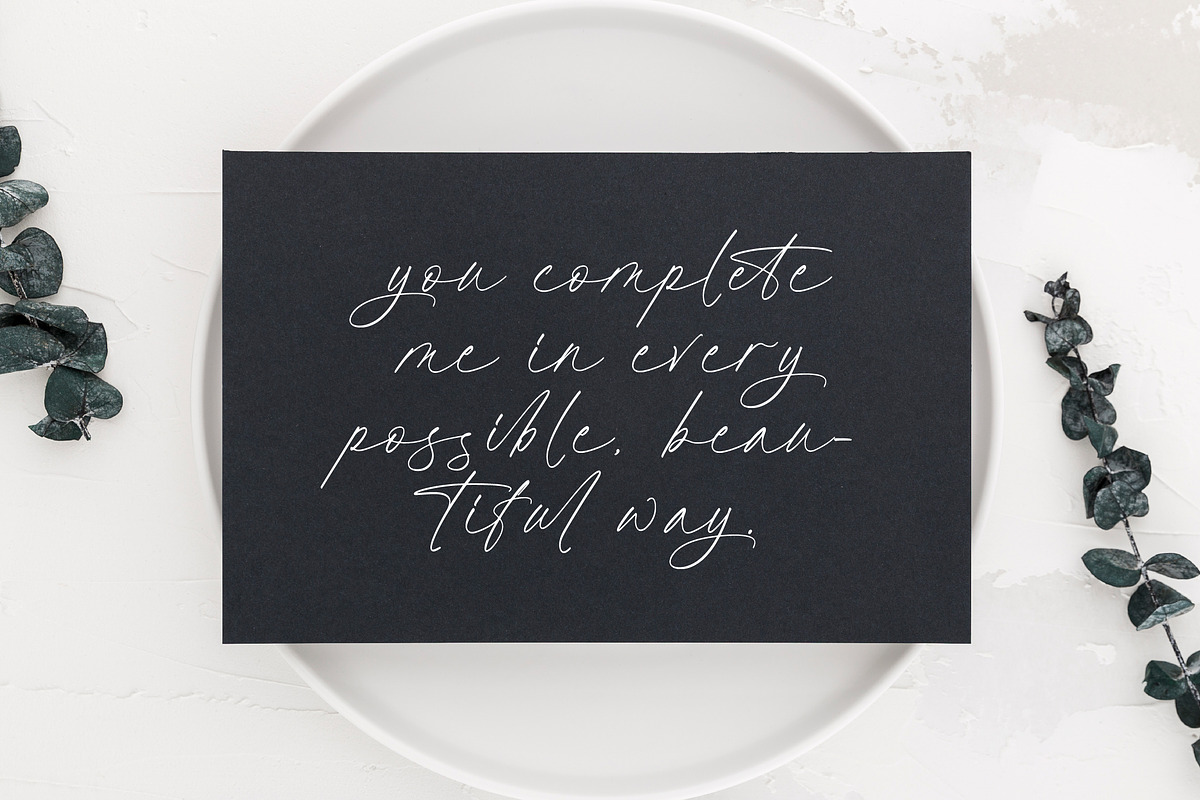 you complete
me in every
possible, beau-
tiful way.